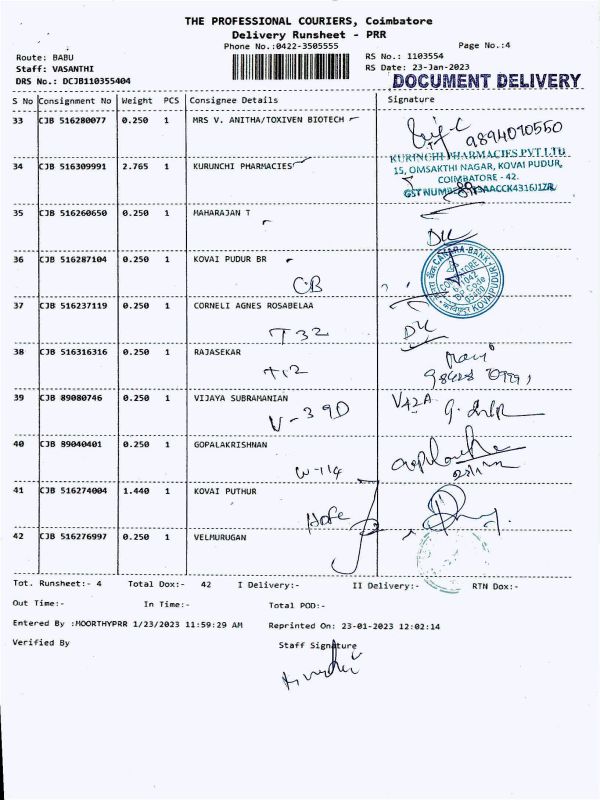 THE PROFESSIONAL COURIERS, Coimbatore
Delivery Runsheet - PRR
Phone No.:0422-3505555
Page No.:4
Route: BABU
RS No.: 1103554
Staff: VASANTHI
RS Date: 23-Jan-2023
DRS No.: DCJB110355404
DOCUMENT DELIVERY
S No Consignment No Weight PCS Consignee Details Signature
33 CJB 516280077 0.250 1 MRS V. ANITHA/TOXIVEN BIOTECH
9894070550
34 CJB 516309991 2.765 1 KURUNCHI PHARMACIES
KURINCHI PHARMACIES PVT LTD
15, OMSAKTHI NAGAR, KOVAI PUDUR,
COIMBATORE - 42.
35 CJB 516260650 0.250 1 MAHARAJAN T
36 CJB 516287104 0.250 1 KOVAI PUDUR BR
CB
CANARA BANK
KOVAIPUDUR
37 CJB 516237119 0.250 1 CORNELI AGNES ROSABELAA
T 32
38 CJB 516316316 0.250 1 RAJASEKAR
T12
39 CJB 89080746 0.250 1 VIJAYA SUBRAMANIAN
V-39D
40 CJB 89040401 0.250 1 GOPALAKRISHNAN
W-114
41 CJB 516274004 1.440 1 KOVAI PUTHUR
Hope
42 CJB 516276997 0.250 1 VELMURUGAN
Tot. Runsheet:- 4 Total Dox:- 42 I Delivery:- II Delivery:- RTN Dox:-
Out Time:- In Time:- Total POD:-
Entered By :MOORTHYPRR 1/23/2023 11:59:29 AM Reprinted On: 23-01-2023 12:02:14
Verified By Staff Signature